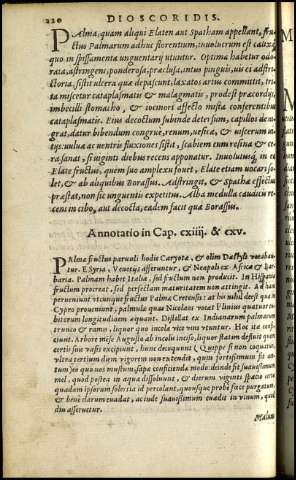 220 DIOSCORIDIS.
PAlma, quam aliqui Elaten aut Spatham appellant, fru
ctus Palmarum adhuc florentium, inuolucrum est cauũ,
quo in spissamenta unguentarij utuntur. Optima habetur odo-
rata, astringens, ponderosa, præclusa, intus pinguis, uis ei adstri
ctoria, sistit ulcera quæ depascunt, laxatos artus committit, tri
ta miscetur cataplasmatis & malagmatis, prodest præcordijs,
imbecilli stomacho, & iocinori affecto mista conferentibus
cataplasmatis. Eius decoctum subinde detersum, capillos deni
grat, datur bibendum congrue, renum, uesicæ, & uiscerum
uuluæ ac uentris fluxiones sistit, scabiem cum resina & ce
ra sanat, si uiginti diebus recens apponatur. Inuolutus, in
Elate fructus, quem suo amplexu fouet, Elate etiam uocari so
let, & ab aliquibus Borassus. Adstringit, & Spathæ effectus
præstat, non sic unguentis expetitus. Alba medulla caudicis re
cens in cibo, aut decocta, eadem facit quæ Borassus.
Annotatio in Cap. cxiiij. & cxv.
PAlmæ fructus paruuli hodie Caryotæ, & olim Dactyli uocaban
tur. E Syria, Venetijs afferuntur, & Neapoli ex Africa & Bar
baria. Palmam habet Italia, sed fructum non producit. In Hispania
fructum procreat, sed perfectam maturitatem non attingit. Ad hanc
perueniunt utcunque fructus Palmæ Cretensis: at his nihil deest quæ in
Cypro proueniunt, palmulis quas Nicolaos uocat Plinius quatuor
bitorum longitudinem æquant. Distillat ex Indianarum palmarum
trunco & ramis, liquor quo incolæ uice uini utuntur. Hoc ita confi
ciunt. Arbore mense Augusto ab incolis incisa, liquor statim defluit quem
certis suis uasis excipiunt, hunc decoquunt (Quippe si non coquatur,
ultra tertium diem uigorem non extendit, quin fortissimum fit ace
tum) eo quo nos mustum, sapæ conficiendæ modo: deinde fit suauissimum
mel, quod postea in aqua dissoluunt, & dierum uiginti spatio circa
quadam ipsorum soleritia id percolant, quousque probe fæce purgatum,
& bene clarum euadat, ac inde suauissimum euadit in uinum, quod
diu asseruatur.
Malus